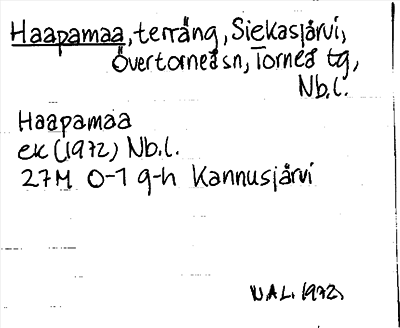 Haapamaa, terräng, Siekasjärvi,
Övertorneå sn, Torneå tg,
Nb.l.
Haapamaa
ek (1972) Nb.l.
27M 0-1 g-h Kannusjärvi
NAL. 1972.